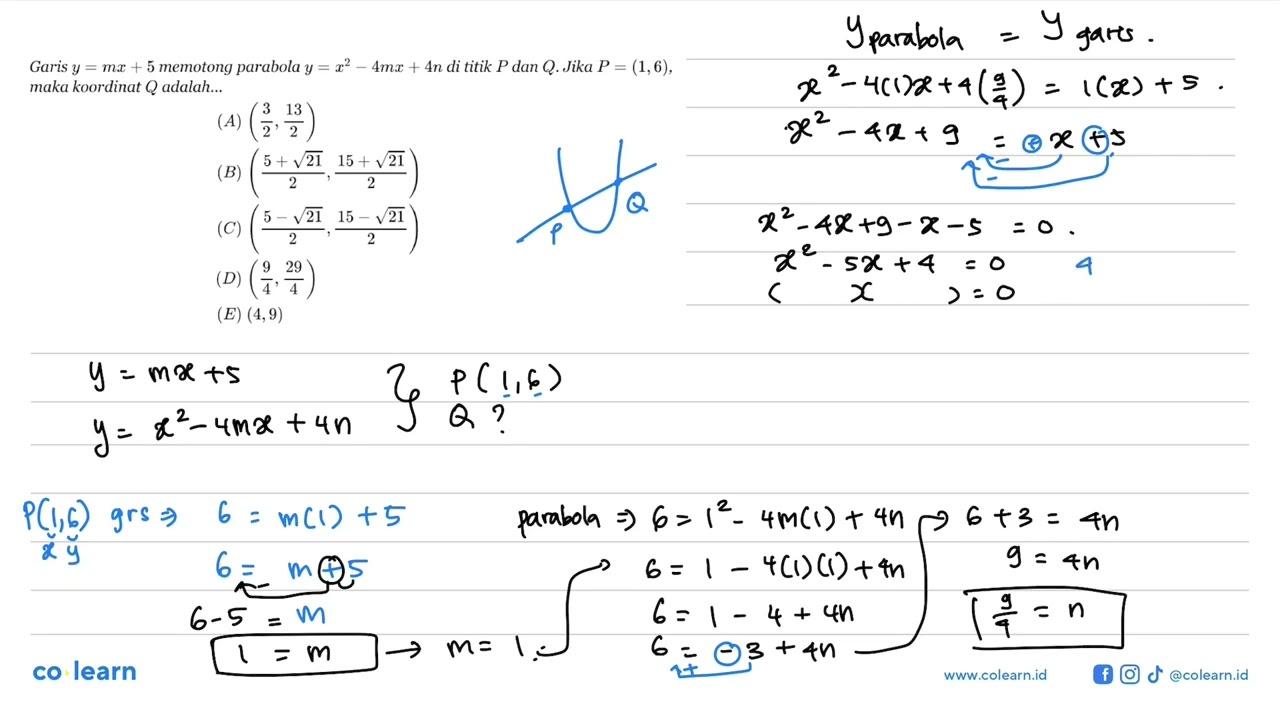 Garis y = mx + 5 memotong parabola y = x² − 4mx + 4n di titik P dan Q. Jika P = (1, 6),
maka koordinat Q adalah...
(A) (3/2, 13/2)
(B) ((5 + √21)/2, (15 + √21)/2)
(C) ((5 − √21)/2, (15 − √21)/2)
(D) (9/4, 29/4)
(E) (4, 9)
P
Q
y parabola = y garis.
x² - 4(1)x + 4(9/4) = 1(x) + 5.
x² - 4x + 9 = + x + 5
-
-
x² - 4x + 9 - x - 5 = 0.
x² - 5x + 4 = 0 4
( x ) = 0
y = mx + 5
y = x² - 4mx + 4n
P(1,6)
Q ?
P(1,6) grs ⇒ 6 = m(1) + 5
x y
6 = m + 5
-
6 - 5 = m
1 = m → m = 1
parabola ⇒ 6 = 1² - 4m(1) + 4n
6 = 1 - 4(1)(1) + 4n
6 = 1 - 4 + 4n
6 = - 3 + 4n
+
6 + 3 = 4n
9 = 4n
9/4 = n
co·learn
www.colearn.id
@colearn.id